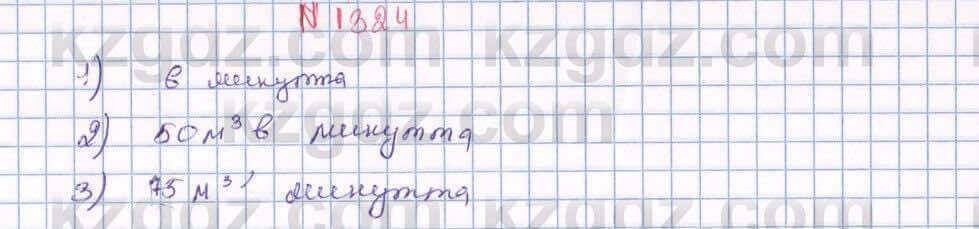 N 1324
1) 6 минутта
2) 50 м³ в минутта
3) 75 м³/ минутта
kzgdz.com kzgdz.com
kzgdz.com
kzgdz.com kzgdz.com